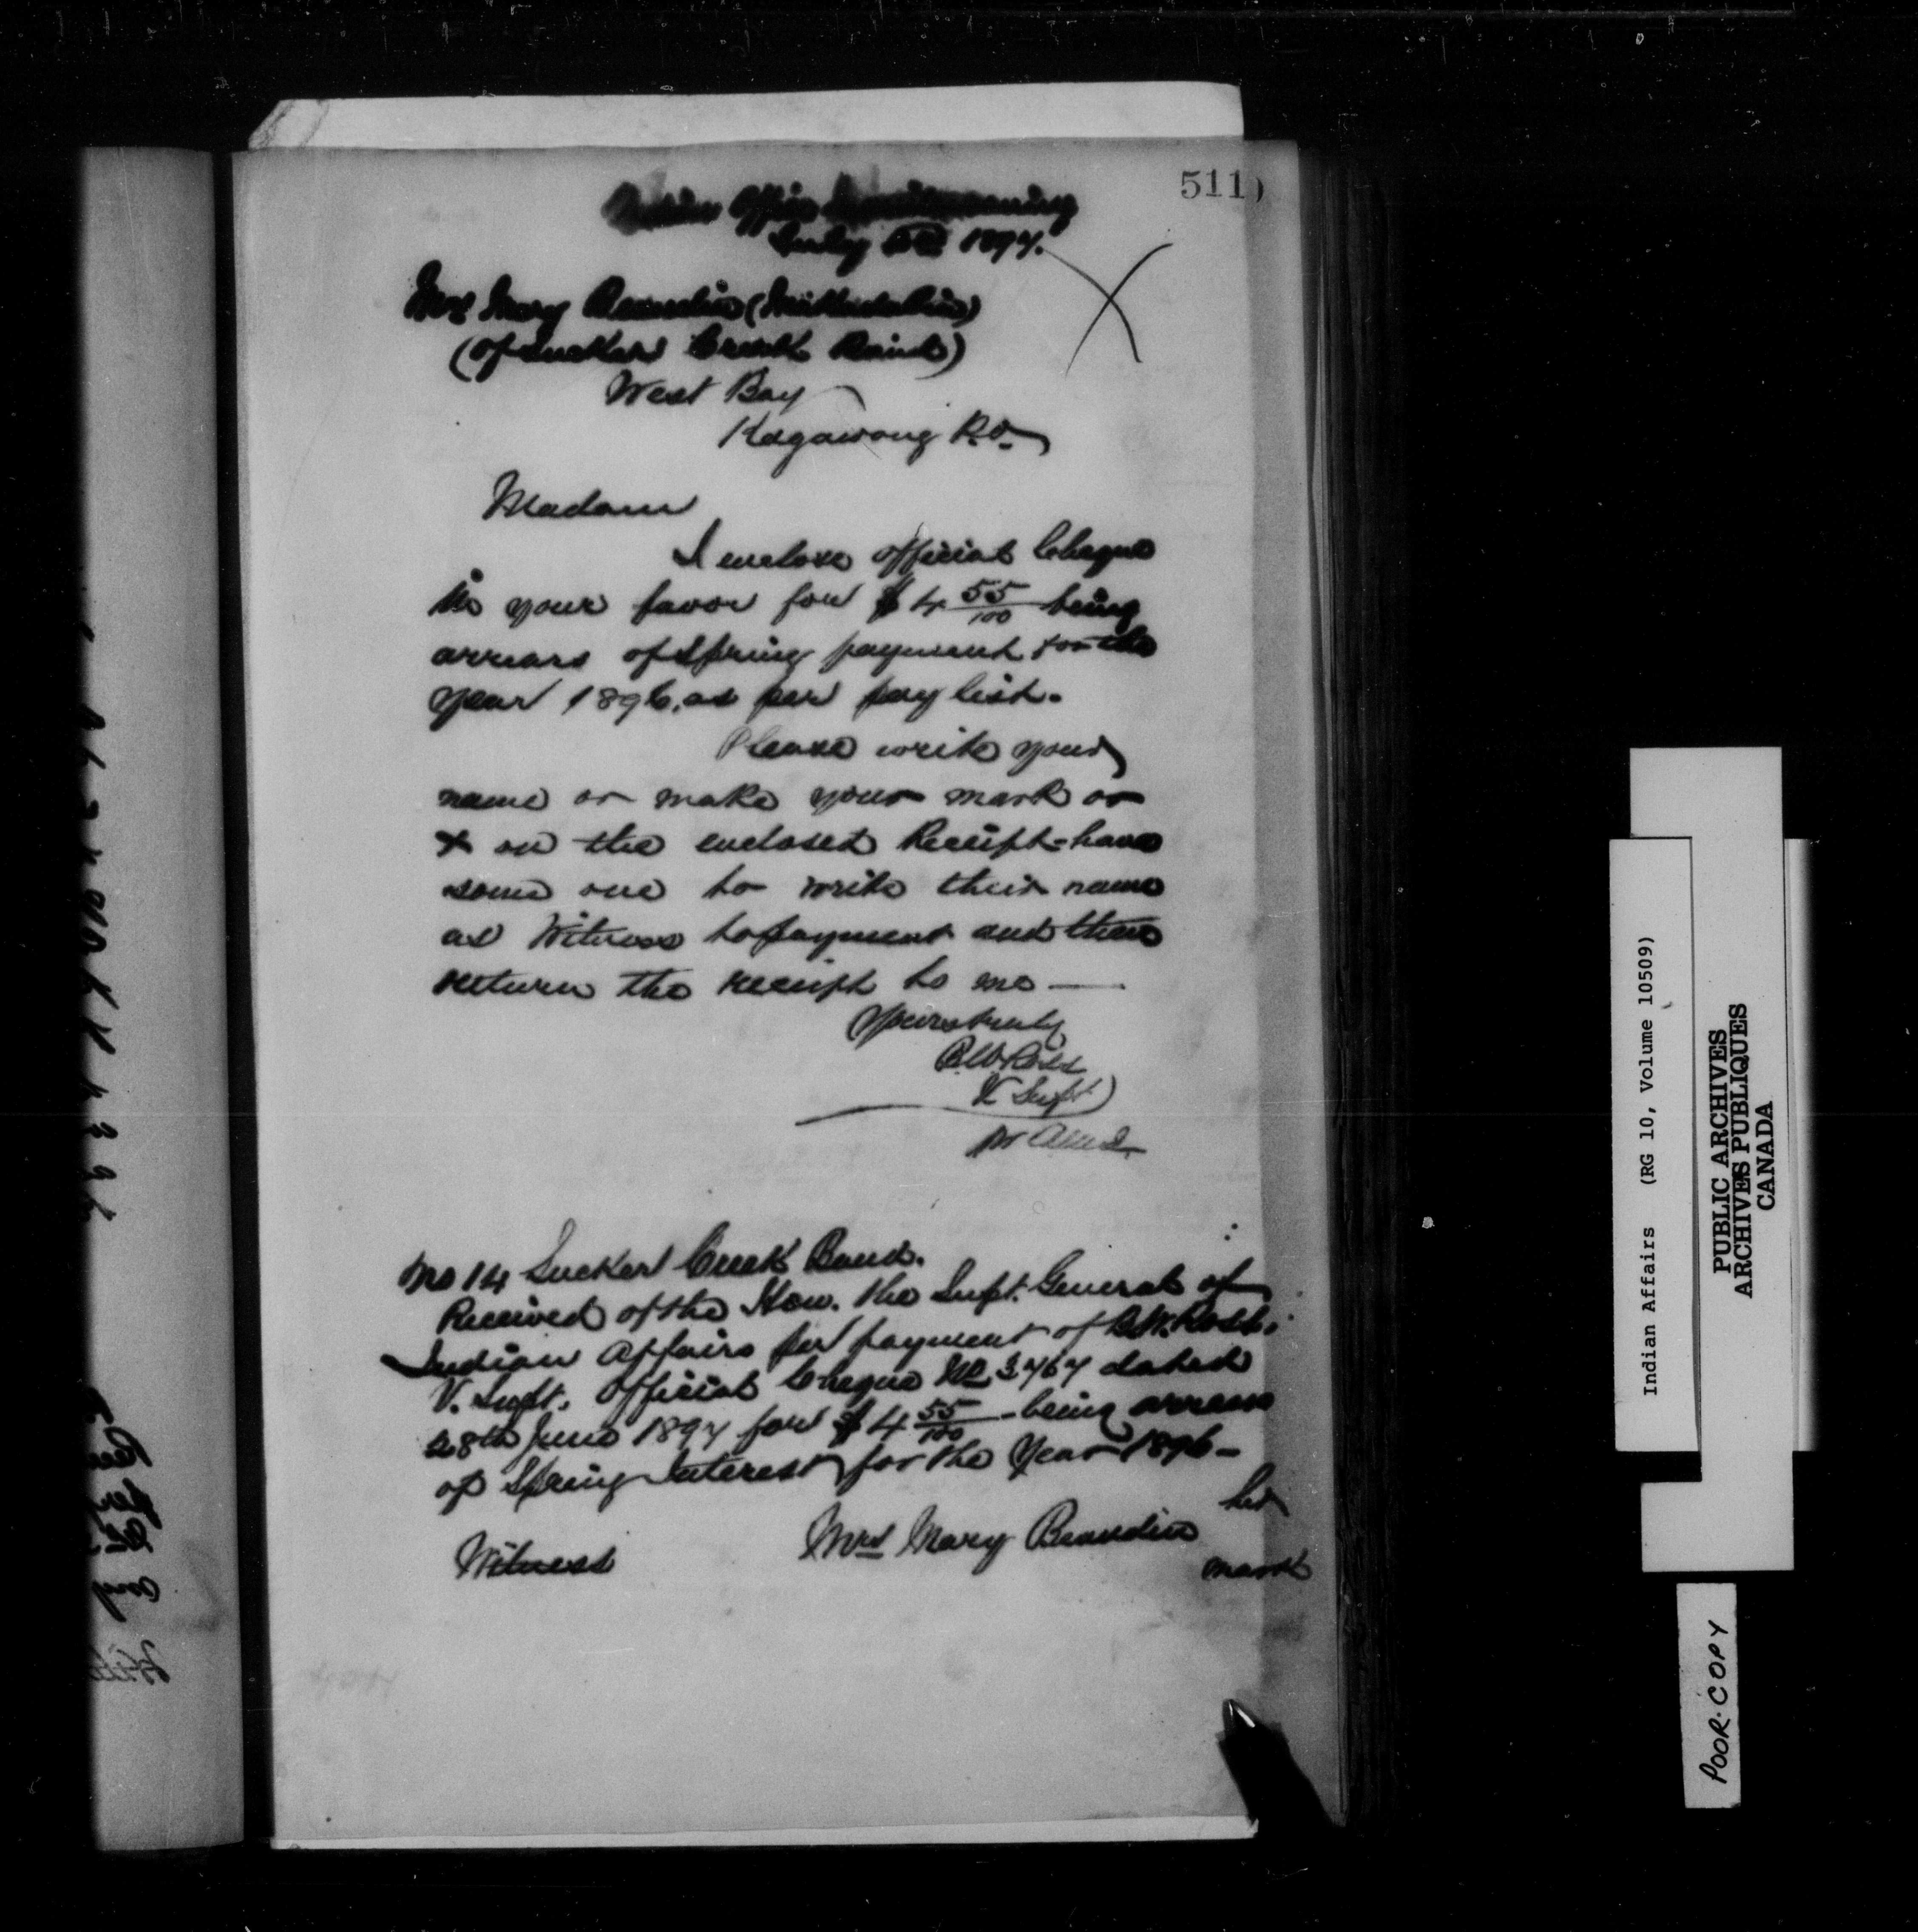 511
Indian Office Manitowaning
July 1897.
Mrs Mary Beaudin
(of Sucker Creek Band)
West Bay
Kagawong P.O.
Madam
I enclose official Cheque
in your favor for $4 55/100 being
arrears of Spring payment for the
year 1896, as per pay list.
Please write your
name or make your mark or
X on the enclosed Receipt - have
some one to write their name
as Witness to payment and then
return the receipt to me —
Yours truly
B.W. Ross
V Supt
pr
No 14 Sucker Creek Band.
Received of the Hon. the Supt. General of
Indian Affairs per payment of B.W. Ross,
V. Supt. Official Cheque No 3767 dated
28th June 1897 for $4 55/100 - being arrears
of Spring Interest for the Year 1896 -
her
Witness Mrs Mary Beaudin
mark
Indian Affairs (RG 10, Volume 10509)
PUBLIC ARCHIVES
ARCHIVES PUBLIQUES
CANADA
POOR COPY